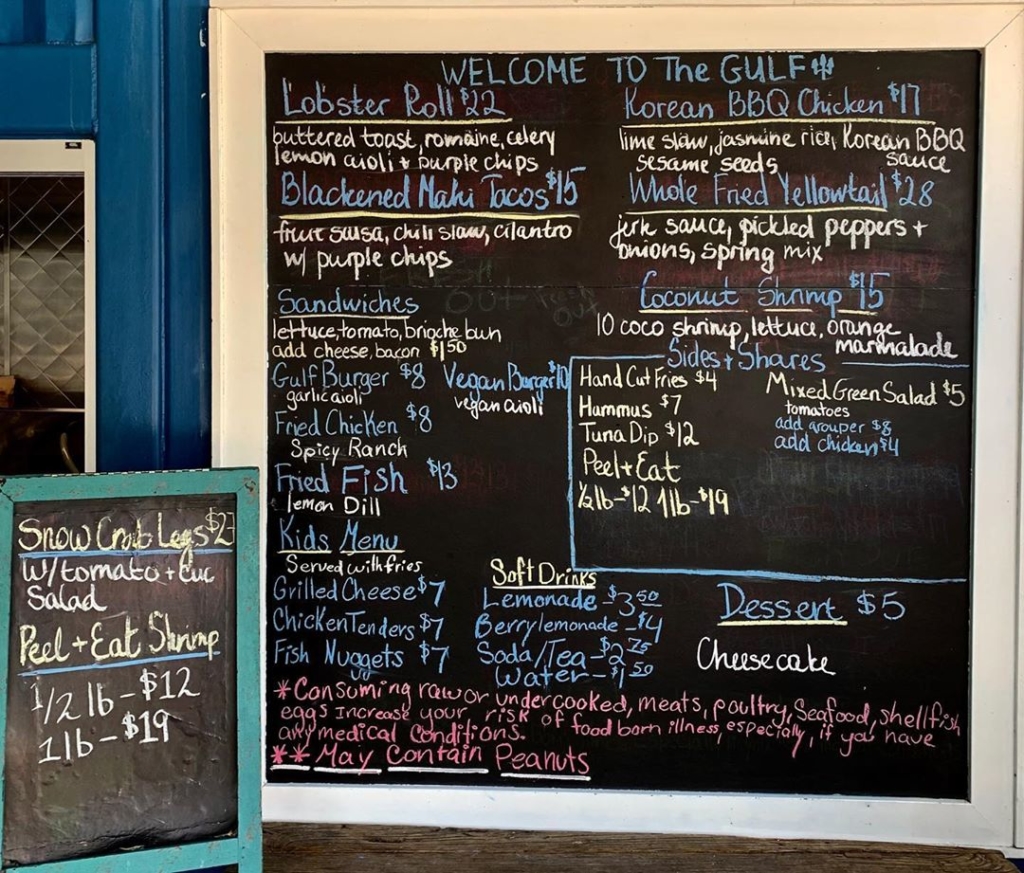 WELCOME TO The GULF
Lobster Roll $22
buttered toast, romaine, celery
lemon aioli + purple chips
Blackened Mahi Tacos $15
fruit salsa, chili slaw, cilantro
w/ purple chips
Korean BBQ Chicken $17
lime slaw, jasmine rice, Korean BBQ
sauce
sesame seeds
Whole Fried Yellowtail $28
jerk sauce, pickled peppers +
onions, spring mix
Coconut Shrimp $15
10 coco shrimp, lettuce, orange
marmalade
Sandwiches
lettuce, tomato, brioche bun
add cheese, bacon $1.50
Gulf Burger $8
garlic aioli
Vegan Burger $10
vegan aioli
Fried Chicken $8
Spicy Ranch
Fried Fish $13
lemon Dill
Sides + Shares
Hand Cut Fries $4
Hummus $7
Tuna Dip $12
Peel + Eat
1/2 lb - $12 1 lb - $19
Mixed Green Salad $5
tomatoes
add grouper $8
add chicken $4
Kids Menu
Served with fries
Grilled Cheese $7
Chicken Tenders $7
Fish Nuggets $7
Soft Drinks
Lemonade - $3.50
Berry lemonade - $4
Soda/Tea - $2.75
Water - $1.50
Dessert $5
Cheesecake
*Consuming raw or undercooked, meats, poultry, Seafood, shellfish
eggs Increase your risk of food born illness, especially, if you have
any medical conditions.
** May Contain Peanuts
Snow Crab Legs $27
W/tomato + cuc
Salad
Peel + Eat Shrimp
1/2 lb - $12
1 lb - $19